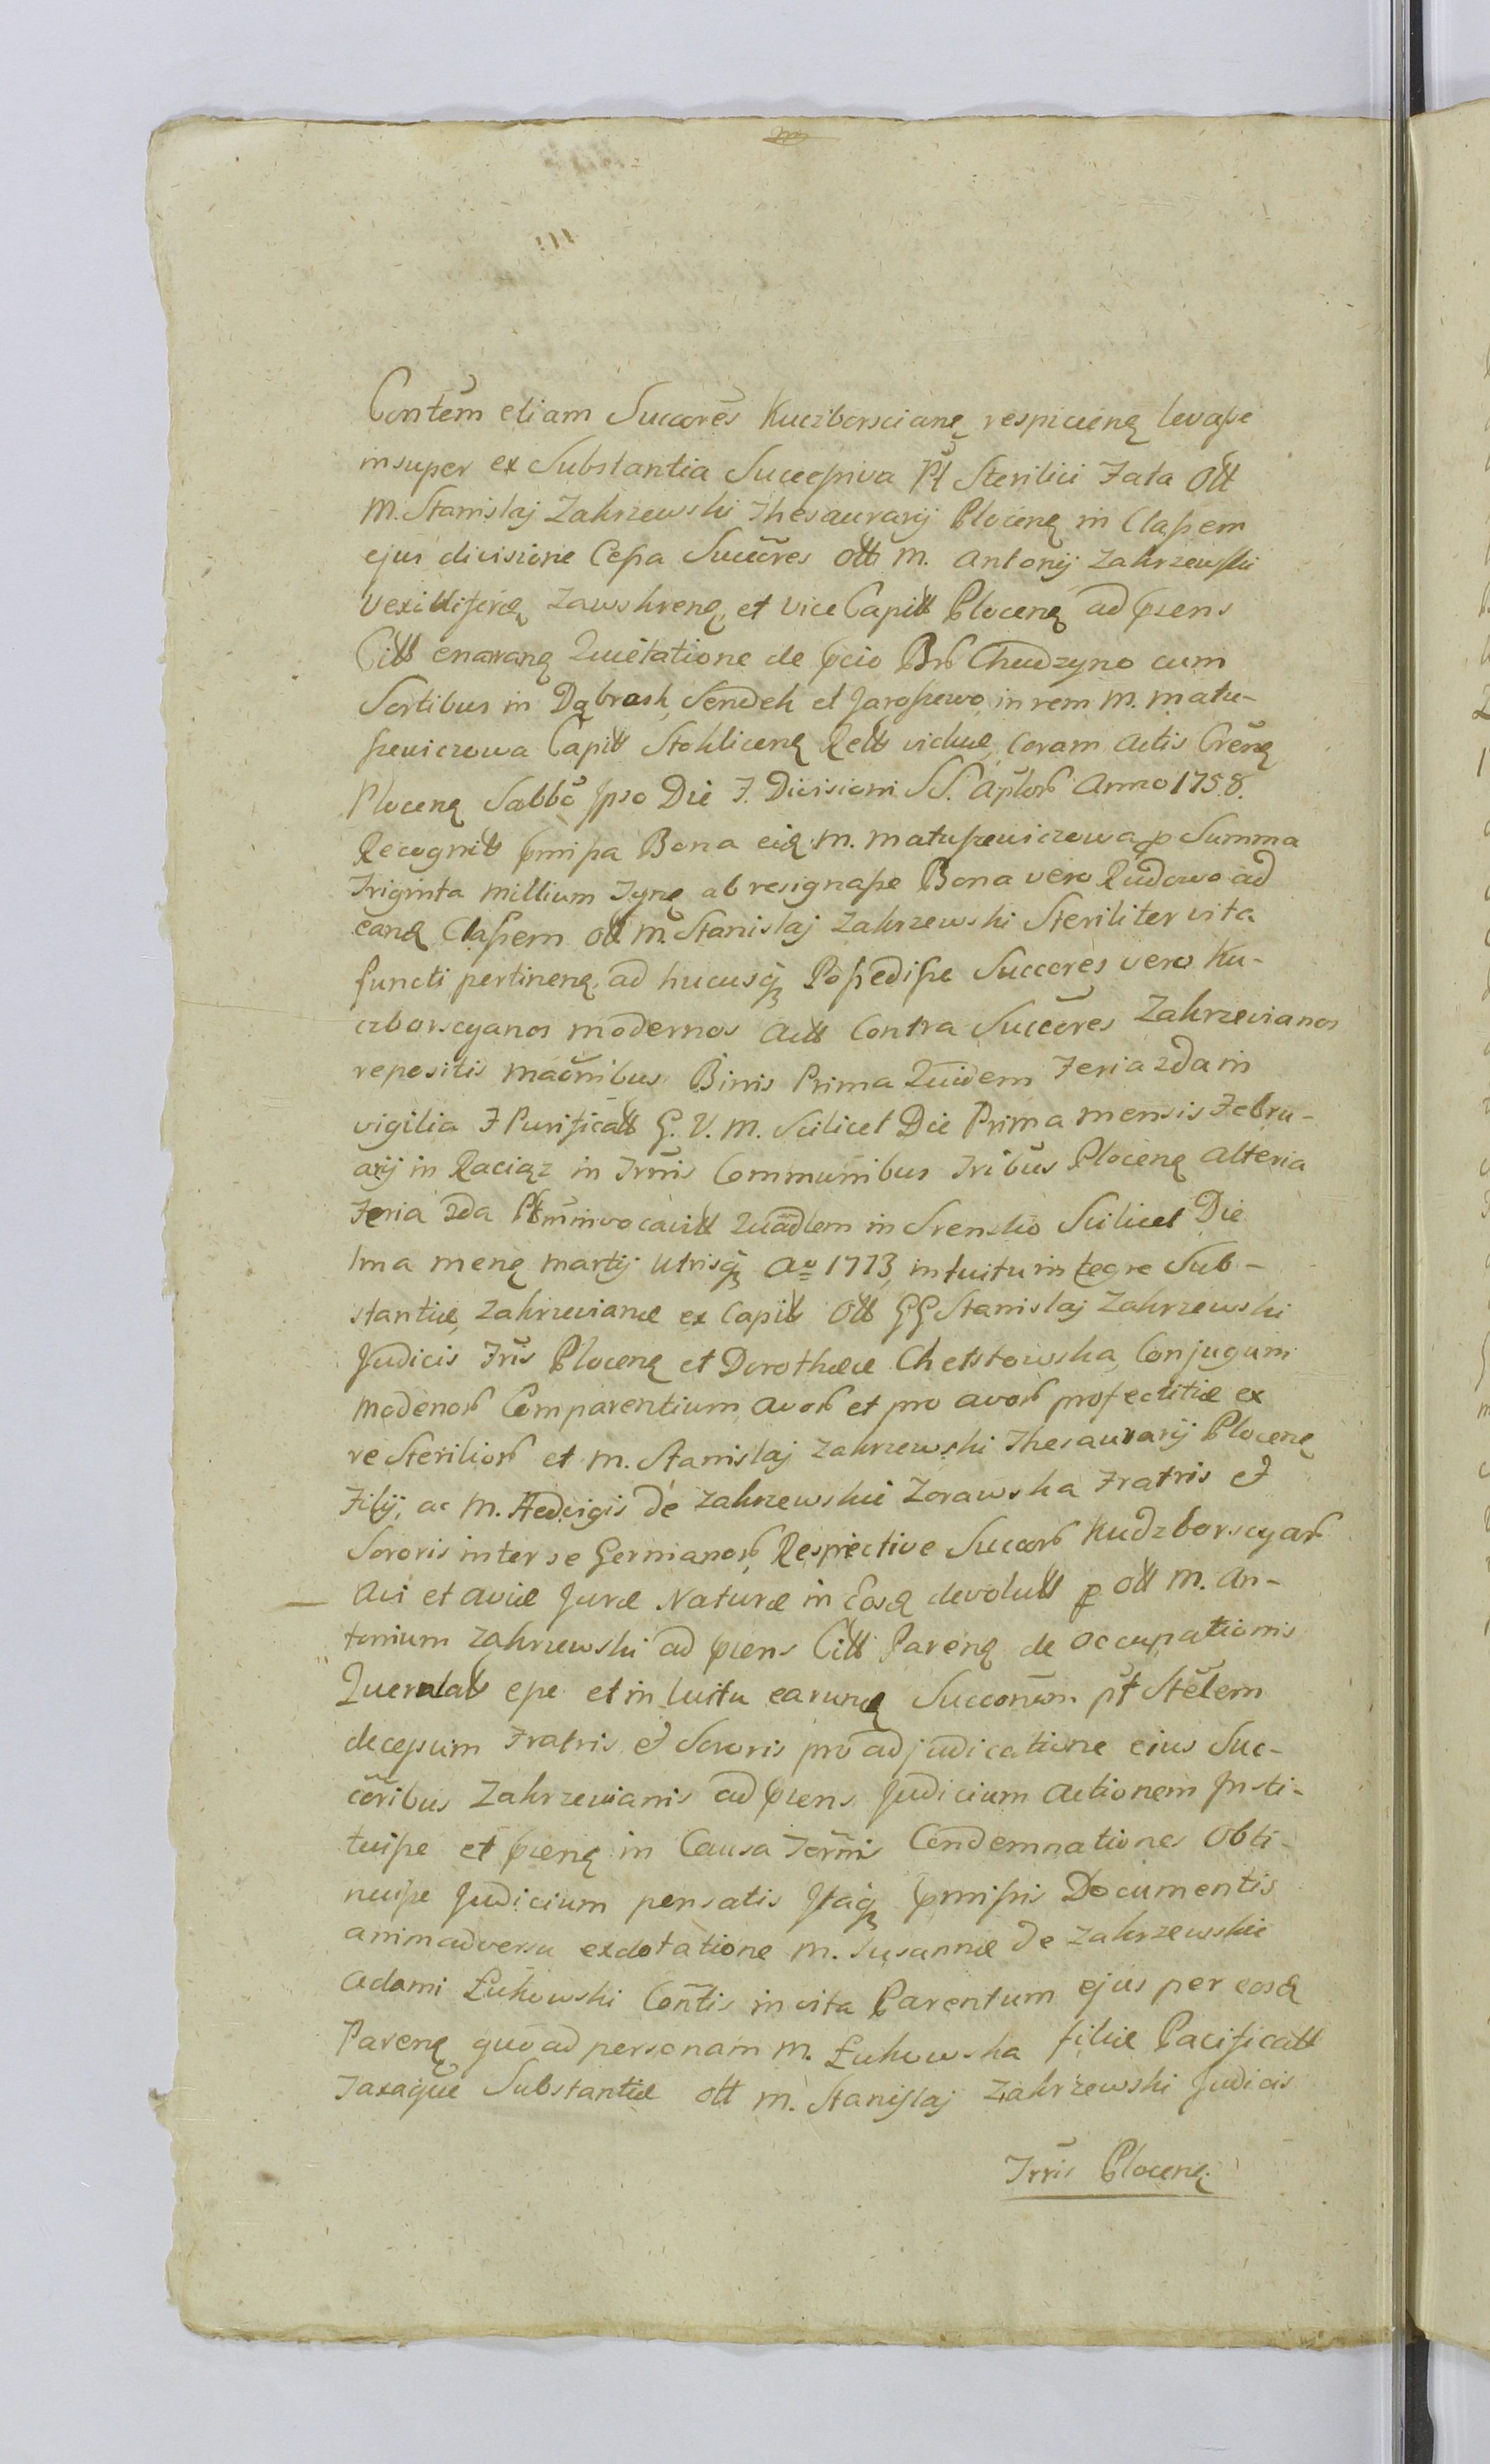 Contem etiam Succōres Kuczborscianę respicienę levasse
insuper ex Substantia Successiva Pt Sterilici Fata Ott
M. Stanislaj Zakrzewski Thesaurarij Plocenę in Classem
ejus divisione Cessa Succōres Ott M. Antonij Zakrzewski
Vexilliferię Zawskrenę et Vice Capitt Plocenę ad pręns
Citt enarranę Quietatione de pcio Brb Chudzyno cum
Sortibus in Dąbrosk, Sendek et Jaroszewo in rem M. Matu-
szewiczowa Capitt Stoklicenę Relt viduæ, coram Actis Crenę
Plocenę Sabbō Ipso Die F. Divisioni SS. Aplorb Anno 1758.
Recognitt pmissa Bona eid M. Matuszewiczowa p Summa
Triginta Millium Tynę ab resignasse Bona vero Rudowo ad
eand Classem Ott M. Stanislaj Zakrzewski Steriliter vita
functi pertinenę ad hucusq Possedisse Succores vero Ku-
czborscyanos modernos Actt Contra Succōres Zakrzevianos
repositis maōnibus Binis Prima Quidem Feria 2da in
vigilia F Purificatt G. V. M. Scilicet Die Prima mensis Febru-
arij in Raciąz in Trmis Communibus Tribus Plocenę alteria
Feria 2da Pt minvocavitt Quadlem in Srensko Scilicet Die
1ma menę Martij Utrisq Aō 1773 intuitu integre Sub-
stantiæ, Zakrzevianæ ex Capitt Ott GG Stanislaj Zakrzewski
Judicis Tris Plocenę et Dorotheæ Chelstowska, Conjugum
modenorb Comparentium avorb et pro avorb profectitiæ ex
re Steriliorb et M. Stanislaj Zakrzewski Thesaurarij Plocenę
Filij, ac M. Hedvigis de Zakrzewskie Zorawska Fratris et
Sororis inter se Germanorb, Respective Succorb Kudzborscyarb
Avi et aviæ Juræ Naturæ in Eosd devolutt p Ott M. An-
tonium Zakrzewski ad pręns Citt Parenę de occupationis
Querulatt esse et in tuitu earund Succorum pt Stēlem
decessum Fratris et Sororis pro adjudicatione eius Suc-
cōribus Zakrzevianis ad pręns Judicium Actionem Insti-
tuisse et prenę in Causa Tormis Condemnationes Obti-
nuisse Judicium pensatis Itaq pmissis Documentis
animadversa exdotatione M. Susannæ de Zakrzewskie
Adami Łukowski Contis in vita Parentum ejus per eosd
Parenę quo ad personam M. Łukowska filiæ Pacificatt
Taxaque Substantiæ Ott M. Stanislaj Zakrzewski Judicis
Trris Plocenę